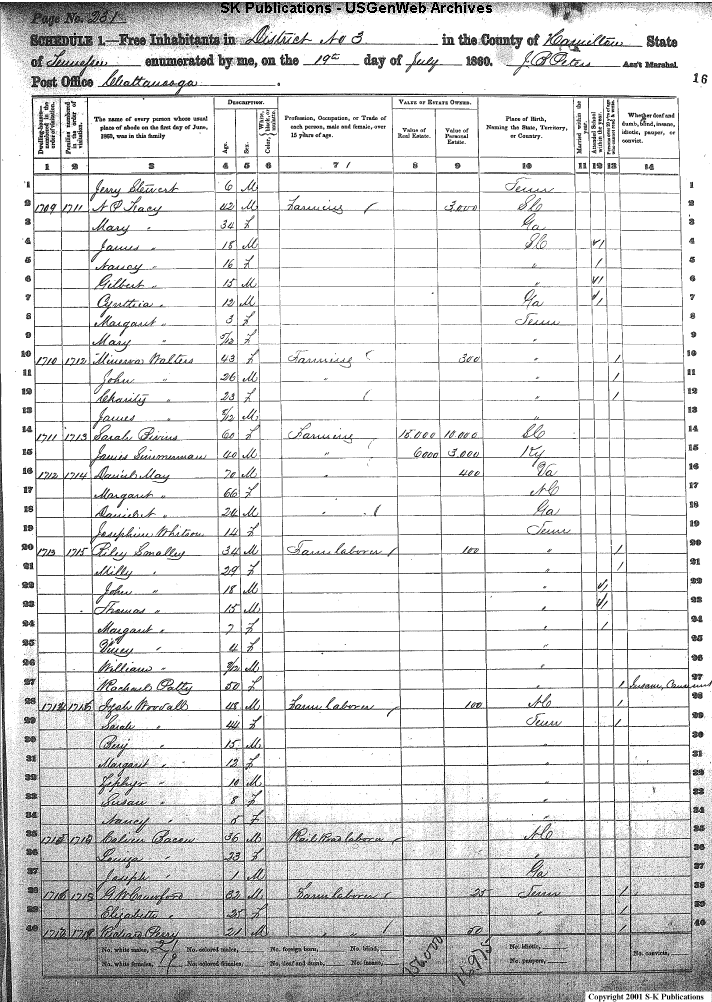 SK Publications - USGenWeb Archives
Page No. 231
SCHEDULE 1.—Free Inhabitants in District No 3 in the County of Hamilton State
of Tennessee enumerated by me, on the 19th day of July 1860. Ass't Marshal.
Post Office Chattanooga.
16
Dwelling-houses—numbered in the order of visitation.
Families numbered in the order of visitation.
The name of every person whose usual place of abode on the first day of June, 1860, was in this family
DESCRIPTION.
Age.
Sex.
Color, White, black, or mulatto.
Profession, Occupation, or Trade of each person, male and female, over 15 years of age.
VALUE OF ESTATE OWNED.
Value of Real Estate.
Value of Personal Estate.
Place of Birth, Naming the State, Territory, or Country.
Married within the year.
Attended School within the year.
Whether deaf and dumb, blind, insane, idiotic, pauper, or convict.
1 2 3 4 5 6 7 8 9 10 11 12 13 14
1 Jerry Stewert 6 M Tenn 1
2 1709 1711 42 M Farming 3,000 SC 2
3 Mary " 34 F Ga 3
4 James " 18 M SC 1 4
5 Nancy " 16 F " 1 5
6 Gilbert " 15 M " 1 6
7 Cynthia " 12 M Ga 1 7
8 Margaret " 3 F Tenn 8
9 Mary " F " 9
10 1710 1712 Minerva Walters 43 F Farming 300 " 1 10
11 John " 26 M " " 1 11
12 Charity " 23 F " 1 12
13 James " M " 13
14 1711 1713 Sarah 60 F Farming 10,000 SC 14
15 James Simmerman 40 M " 6000 3,000 Ky 15
16 1712 1714 Daniel May 70 M " 400 Va 16
17 Margaret " 66 F NC 17
18 Daniel " 24 M " Ga 18
19 Josephine Whitson 14 F Tenn 19
20 1713 1715 Riley Smalley 34 M Farm laborer 100 " 1 20
21 Milly " 29 F " 1 21
22 John " 18 M " 1 22
23 Thomas " 15 M " 1 23
24 Margaret " 7 F " 1 24
25 " 4 F " 25
26 William " M " 26
27 Rachael Patty 50 F " 1 Insane, 27
28 Woodall 48 M Farm laborer 100 NC 1 28
29 Sarah " 44 F Tenn 1 29
30 Benj " 15 M " 30
31 Margaret " 12 F " 31
32 Zephyr " 10 M " 32
33 Susan " 8 F " 33
34 Nancy " 5 F " 34
35 Calvin 36 M Rail Road laborer NC 35
36 Louiza " 23 F " 36
37 Joseph " 1 M Ga 37
38 G W Crawford 32 M Farm laborer 25 Tenn 1 38
39 Elizabeth " 25 F " 1 39
40 Perry 21 M " " 50 " 1 40
No. white males, 21 No. colored males, No. foreign born, No. blind, No. idiotic,
No. white females, 19 No. colored females, No. deaf and dumb, No. insane, No. paupers, No. convicts,
Copyright 2001 S-K Publications